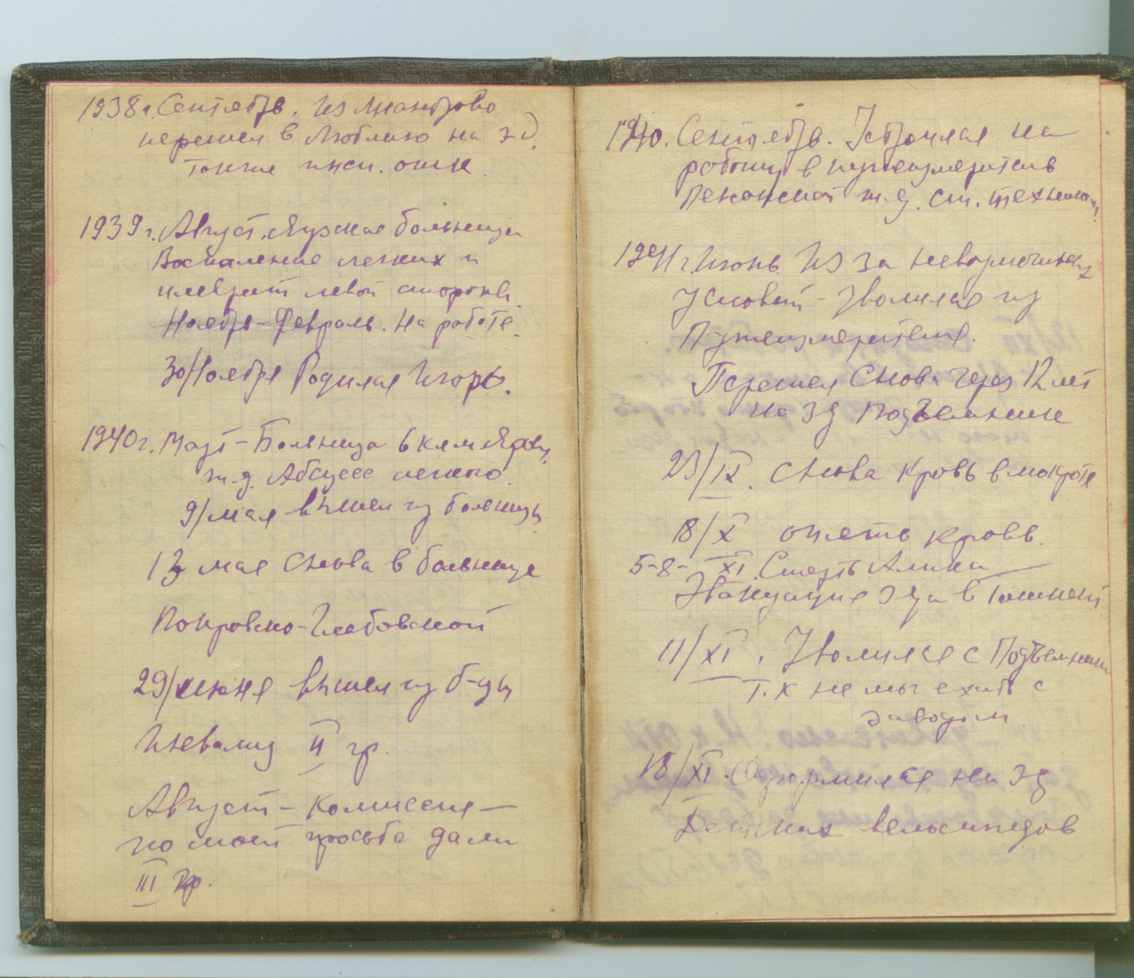 1938г. Сентябрь. Из
перешел в Люблино на зд.
инсп. отк.
1939г. Август. Яузская больница
Воспаление легких и
плеврит левой стороны.
Ноябрь-Февраль. На работе.
30/Ноября Родился Игорь.
1940г. Март - Больница
ж.д. Абсцесс легкого.
9/мая вышел из больницы
13 мая снова в больнице
Покровско-Глебовской
29/июня вышел из б-цы
Инвалид II гр.
Август - комиссия -
по моей просьбе дали
III гр.
1940. Сентябрь. Устроился на
работу в путеизмеритель
ж.д. ст. техником.
1941г. Июнь Из за невозможных
условий - уволился из
Путеизмерителя.
Перешел снова через 12 лет
на зд Подъемник
23/IX. снова кровь в мокроте
18/X опять кровь.
5-8- XI. Смерть Алика
Эвакуация з-да в Ташкент
11/XI. Уволился с Подъемника
т.к не мог ехать с
заводом.
18/XI. Оформился на зд
Детских велосипедов